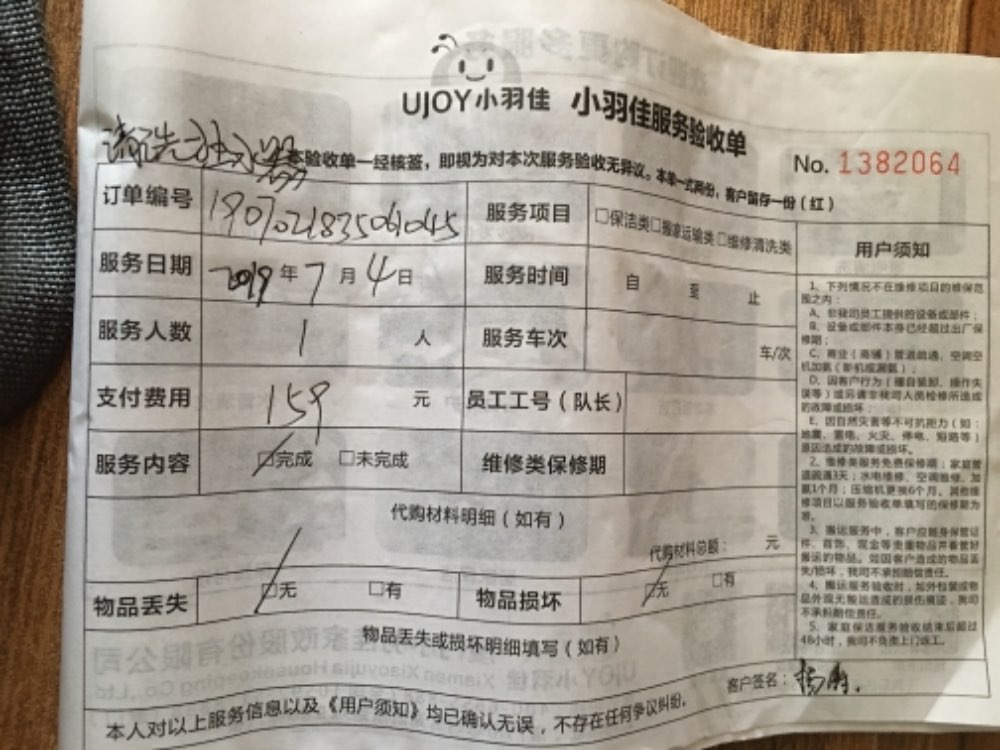 UJOY小羽佳 小羽佳服务验收单
本验收单一经核签，即视为对本次服务验收无异议。本单一式两份，客户留存一份（红）
No. 1382064
订单编号 服务项目 □保洁类□搬家运输类□维修清洗类
服务日期 2019年7月4日 服务时间 自 至 止
服务人数 1 人 服务车次 车/次
支付费用 159 元 员工工号（队长）
服务内容 □完成 □未完成 维修类保修期
代购材料明细（如有）
代购材料总额： 元
物品丢失 □无 □有 物品损坏 □无 □有
物品丢失或损坏明细填写（如有）
客户签名：
本人对以上服务信息以及《用户须知》均已确认无误，不存在任何争议纠纷。
用户须知
1、下列情况不在维修项目的维保范
围之内：
A、非我司员工提供的设备或部件；
B、设备或部件本身已经超过出厂保
修期；
C、商业（商铺）管道疏通、空调空
机加氨（新机或漏氨）；
D、因客户行为（擅自装卸、操作失
误等）或另请非我司人员检修所造成
的故障或损坏；
E、因自然灾害等不可抗拒力（如：
地震、雷电、火灾、停电、短路等）
原因造成的故障或损坏。
2、维修类服务免费保修期：家庭管
道疏通3天；水电维修、空调维修、加
氨1个月；压缩机更换6个月。其他维
修项目以服务验收单填写的保修期为
准。
3、搬运服务中，客户应随身保管证
件、首饰、现金等贵重物品并看管好
搬运的物品。如因客户造成的物品丢
失/损坏，我司不承担赔偿责任。
4、搬运服务验收时，如外包装或物
品外观无搬运造成的损伤痕迹，我司
不承担赔偿责任。
5、家庭保洁服务验收结束后超过
48小时，我司不负责上门返工。